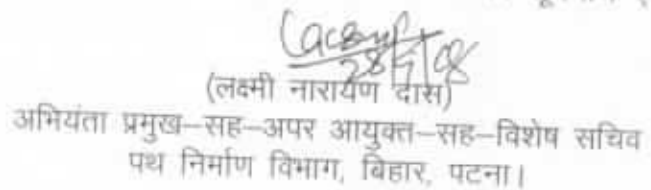 28/5/08
(लक्ष्मी नारायण दास)
अभियंता प्रमुख–सह–अपर आयुक्त–सह–विशेष सचिव
पथ निर्माण विभाग, बिहार, पटना।